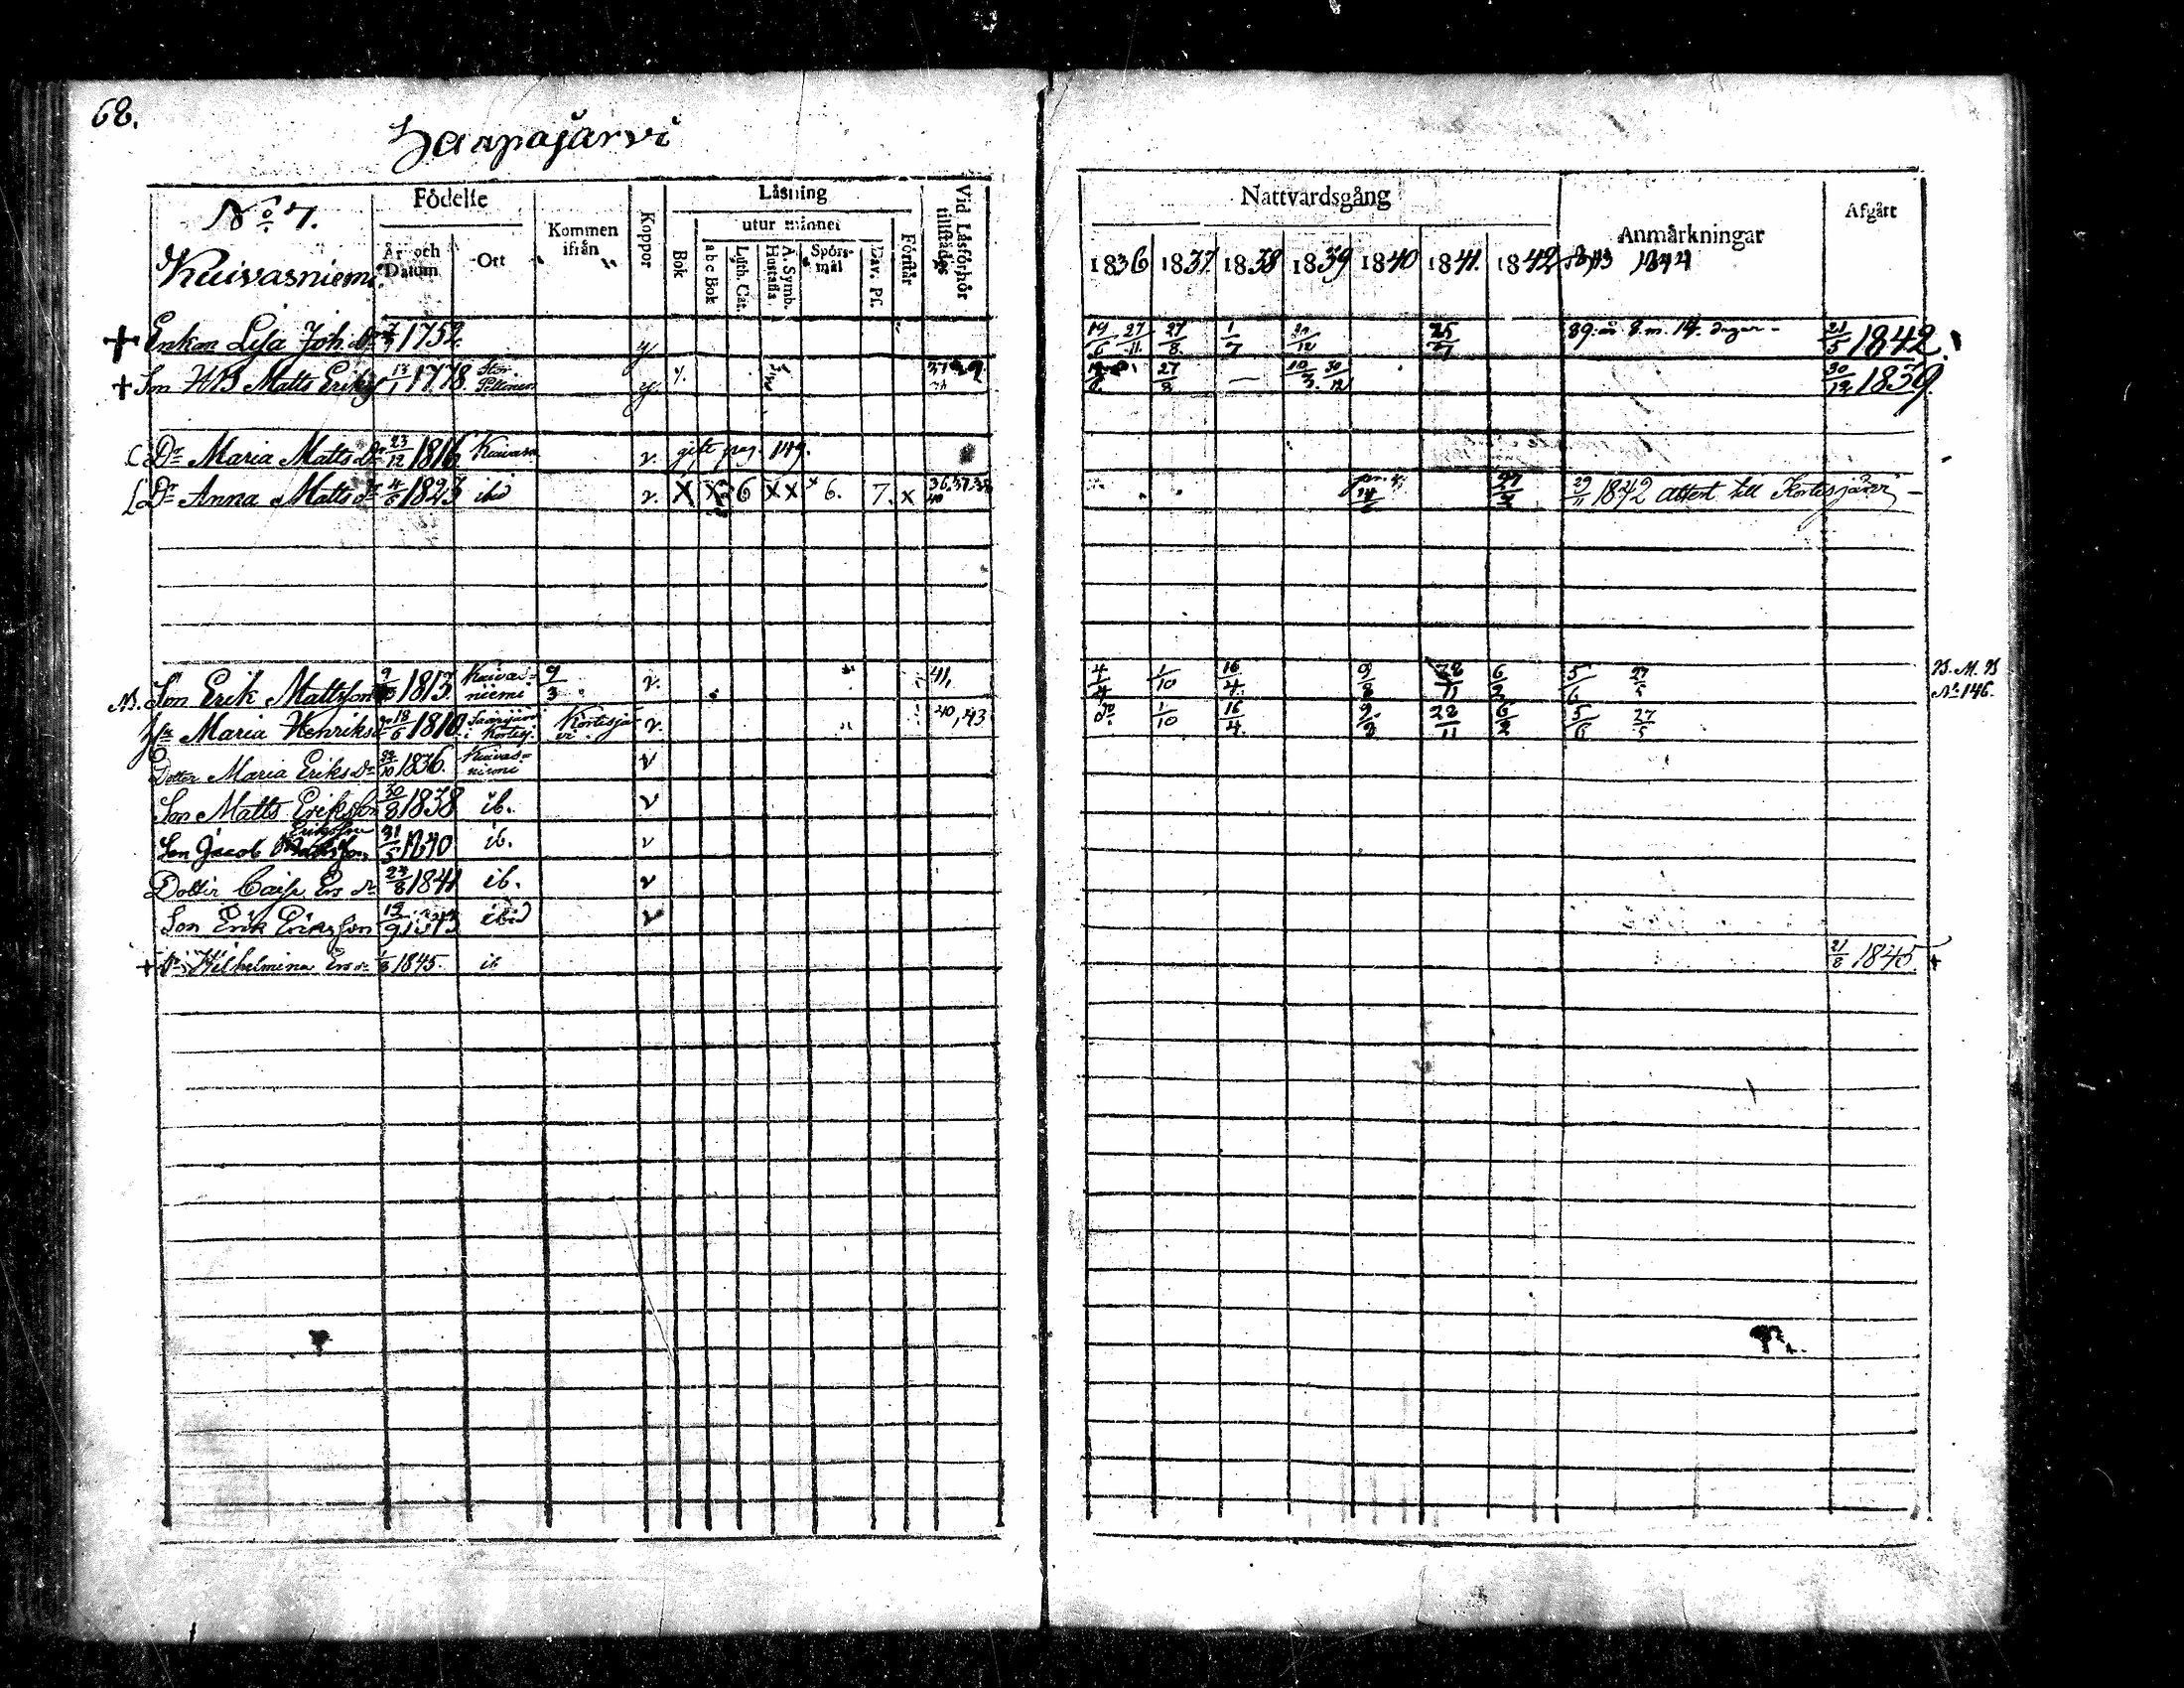 68.
Haapajärvi
No 7.
Kuivasniemi.
Födelse
År och Datum
Ort
Kommen ifrån
Koppor
Läsning
utur minnet
Bok
a b c Bok
Luth. Cat.
A. Symb. Hustafla
Spörsmål
Dav. Ps.
Förstår
Vid Läsförhör tillstädes
Nattvardsgång
1836 1837 1838 1839 1840 1841. 1842 1843 1844
Anmärkningar
Afgått
+ Enkan Lisa Joh. Dr 1752. 27/8. 1/7 89. år 8. m. 14. dagar - 21/5 1842.
+ Son Matts Eriks 13/1 1778. y 27/8 — 30/12 30/12 1839.
Dr Maria Matts Dr 23/12 1816. v. gift pag. 119.
Dr Anna Matts Dr 1823 ibid v. X X 6 X X 6. 7. x 36.37.38 40 29/11 1842 attest till Kortesjärvi -
Son Erik Mattsson 1813. Kuivasniemi 9/3 v. 41, 4/4 1/10 16/4. 28/11 6/2 5/6 27/5 No 146.
Maria Henriks 18/6 1810. Kortesjärvi v. 40, 43 1/10 16/4. 28/11 6/2 5/6 27/5
Dotter Maria Eriks Dr 1836. Kuivasniemi v
Son Matts Eriksson 30/8 1838 ib. v
Son Jacob Eriksson 31/5 1840 ib. v
Dotter Caisa Ers dr 23/8 1841 ib. v
Son Erik Eriksson 19/9 1843 ibid v
+ Dr Wilhelmina Ers dr 1845. ib 21/8 1845. +